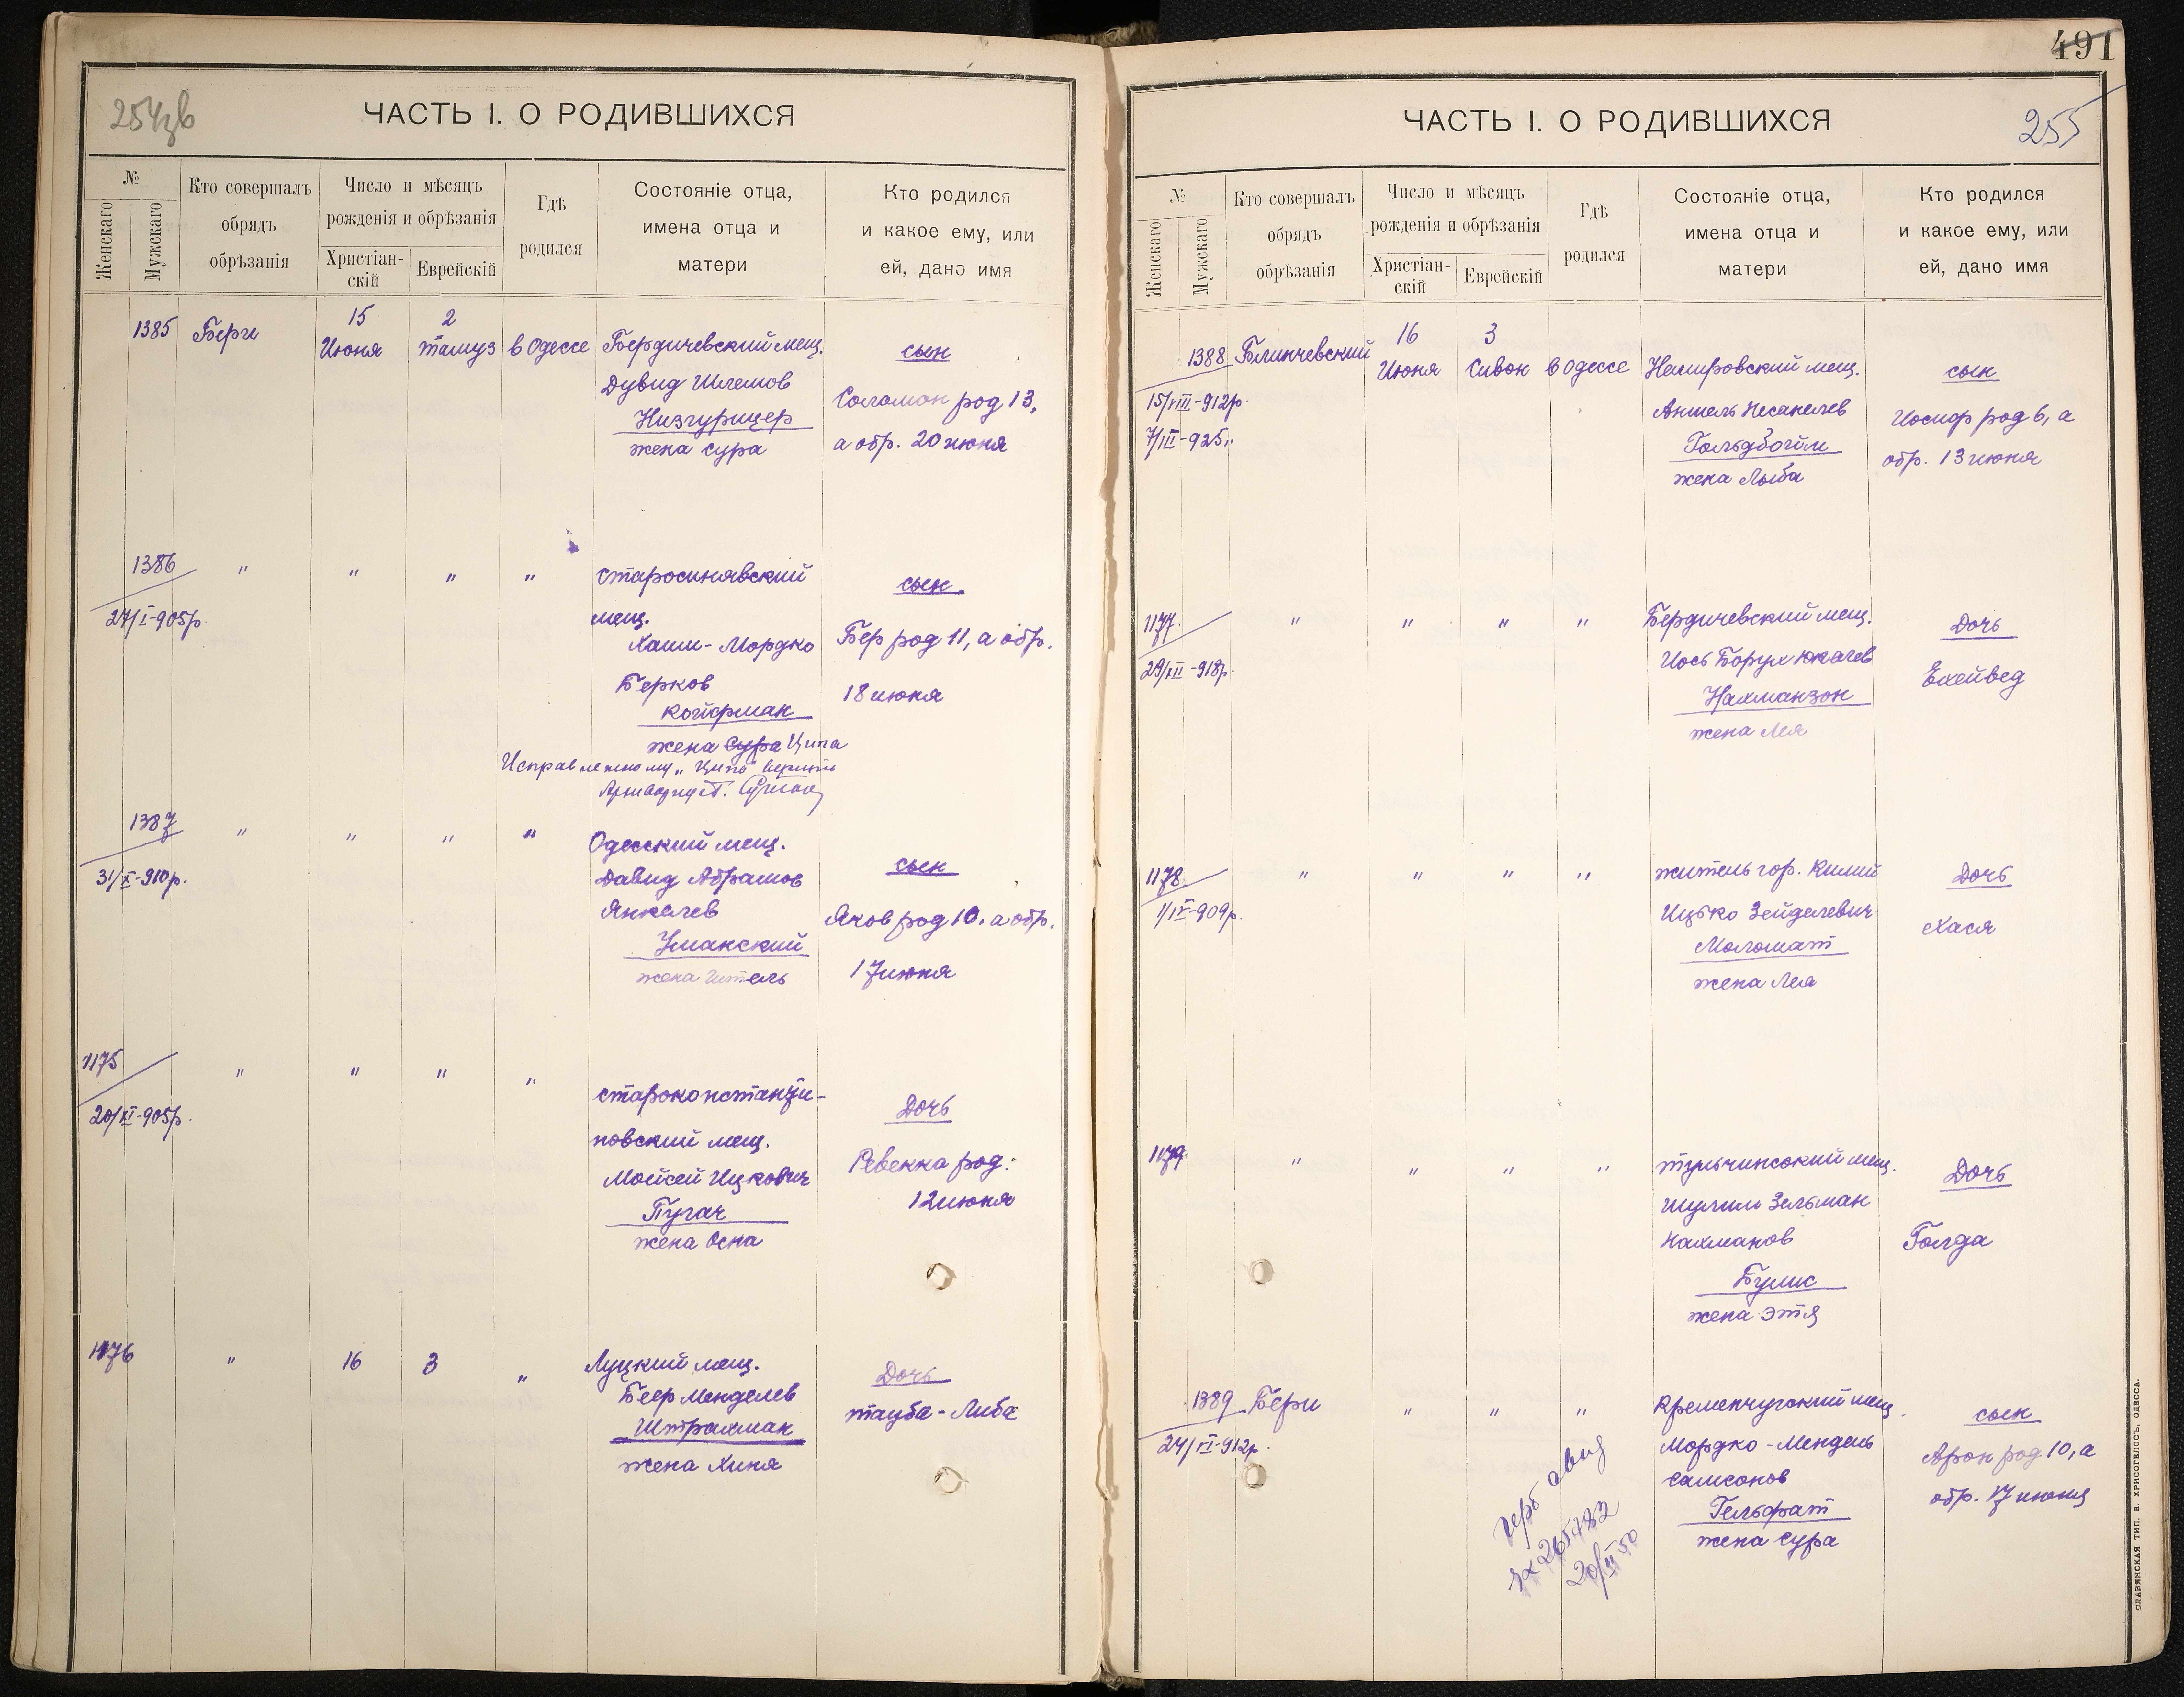 254зв
ЧАСТЬ I. О РОДИВШИХСЯ
№
Женскаго
Мужскаго
Кто совершалъ
обрядъ
обрѣзанія
Число и мѣсяцъ
рожденія и обрѣзанія
Христіан-
скій
Еврейскій
Гдѣ
родился
Состояніе отца,
имена отца и
матери
Кто родился
и какое ему, или
ей, дано имя
1385
15
Июня
2
тамуз
в Одессе
Бердичевский мещ.
Дувид Шлемов
Низгурицер
жена Сура
сын
Соломон род 13,
а обр. 20 июня
1386
27/I-905р.
"
"
"
"
Старосинявский
мещ.
Хаим-Мордко
Берков
Койфман
жена Сура Ципа
сын
Бер род 11, а обр.
18 июня
Исправленному „Ципа" верить
1387
31/X-910р.
"
"
"
"
Одесский мещ.
Давид Абрамов
Янкелев
Уманский
жена Гитель
сын
Яков род 10. а обр.
17 июня
1175
20/XI-905р.
"
"
"
"
Староконстанти-
новский мещ.
Мойсей Ицкович
Пугач
жена Осна
Дочь
Ревекка род:
12 июня
1176
"
16
3
"
Луцкий мещ.
Беер Менделев
Штрахман
жена Хиня
Дочь
Тауба-Либа
491
ЧАСТЬ I. О РОДИВШИХСЯ
255
№
Женскаго
Мужскаго
Кто совершалъ
обрядъ
обрѣзанія
Число и мѣсяцъ
рожденія и обрѣзанія
Христіан-
скій
Еврейскій
Гдѣ
родился
Состояніе отца,
имена отца и
матери
Кто родился
и какое ему, или
ей, дано имя
1388
15/VIII-912р.
7/III-925.
Блинчевский
16
Июня
3
Сивон
в Одессе
Немировский мещ.
Аншель
жена Лыба
сын
Иосиф род 6, а
обр. 13 июня
1177
"
"
"
"
Бердичевский мещ.
Иось Борух
Нахманзон
жена Лея
Дочь
Ехейвед
1178
1/IV-909р.
"
"
"
"
житель гор. Килии
Ицько Зейделевич
Моломат
жена Лея
Дочь
Хася
1179
"
"
"
"
тульчинсокий мещ.
Шулим Зельман
Нахманов
Булис
жена Этя
Дочь
Голда
1389
24/VI-912р.
Бери
"
"
"
Кременчугский мещ.
Мордко-Мендель
Самсонов
Гельфат
жена Сура
сын
Арон род 10, а
обр. 17 июня
20/II 50
СЛАВЯНСКАЯ ТИП. Н. ХРИСОГЕЛОСЪ, ОДЕССА.